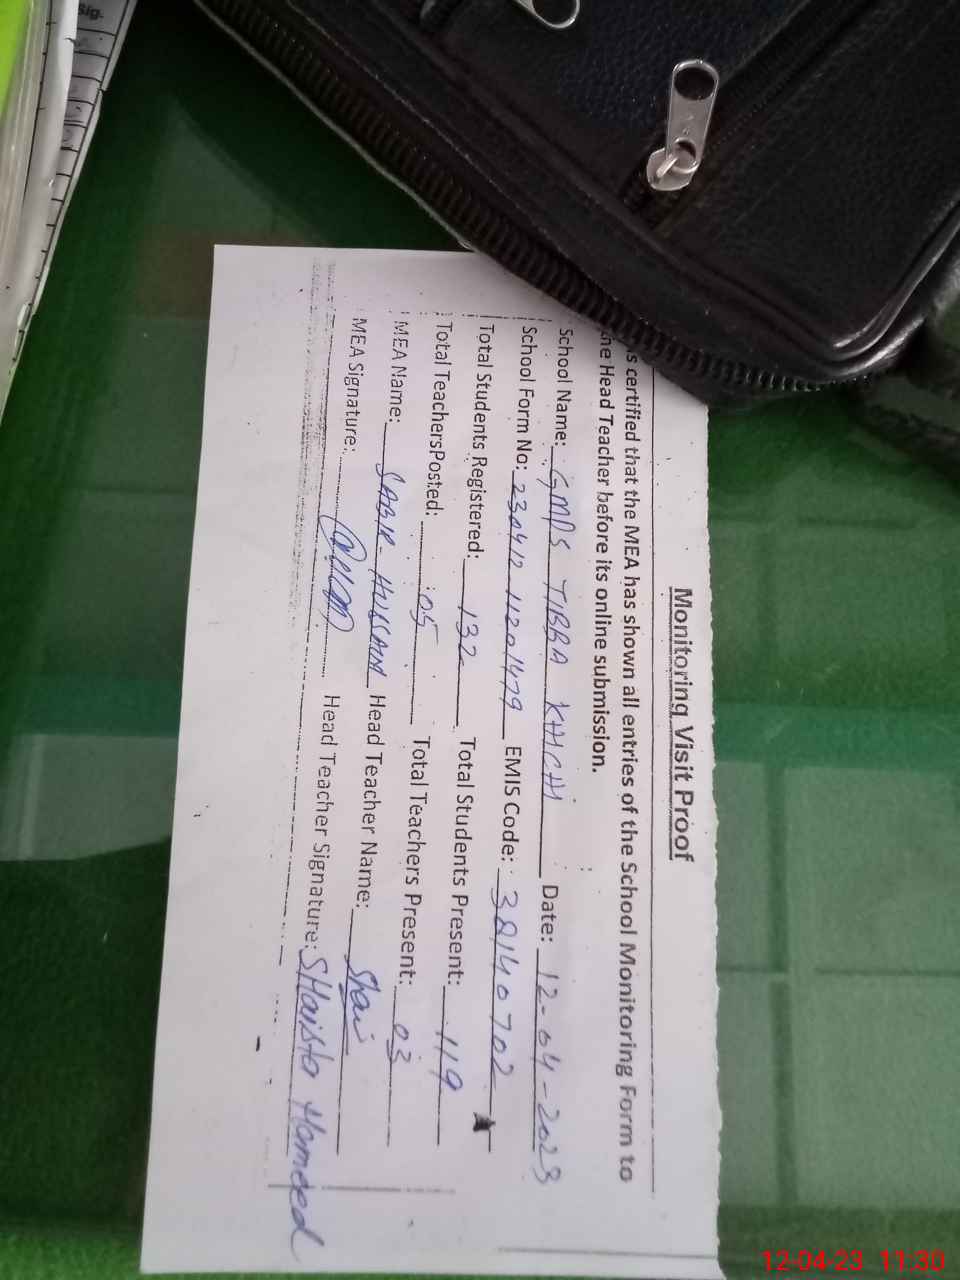 Monitoring Visit Proof
is certified that the MEA has shown all entries of the School Monitoring Form to
the Head Teacher before its online submission.
School Name: GMPS TIBBA KHICHI Date: 12-04-2023
School Form No: 230412 11201479 EMIS Code: 38140702
Total Students Registered: 132 Total Students Present: 119
Total TeachersPosted: 05 Total Teachers Present: 03
MEA Name: SABIR HUSSAIN Head Teacher Name: Shai
MEA Signature: Head Teacher Signature: SHaista Hameed
Sig.
12-04-23 11:30